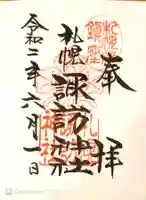 奉拝
札幌
諏訪神社
令和二年六月一日
札幌
鎮座